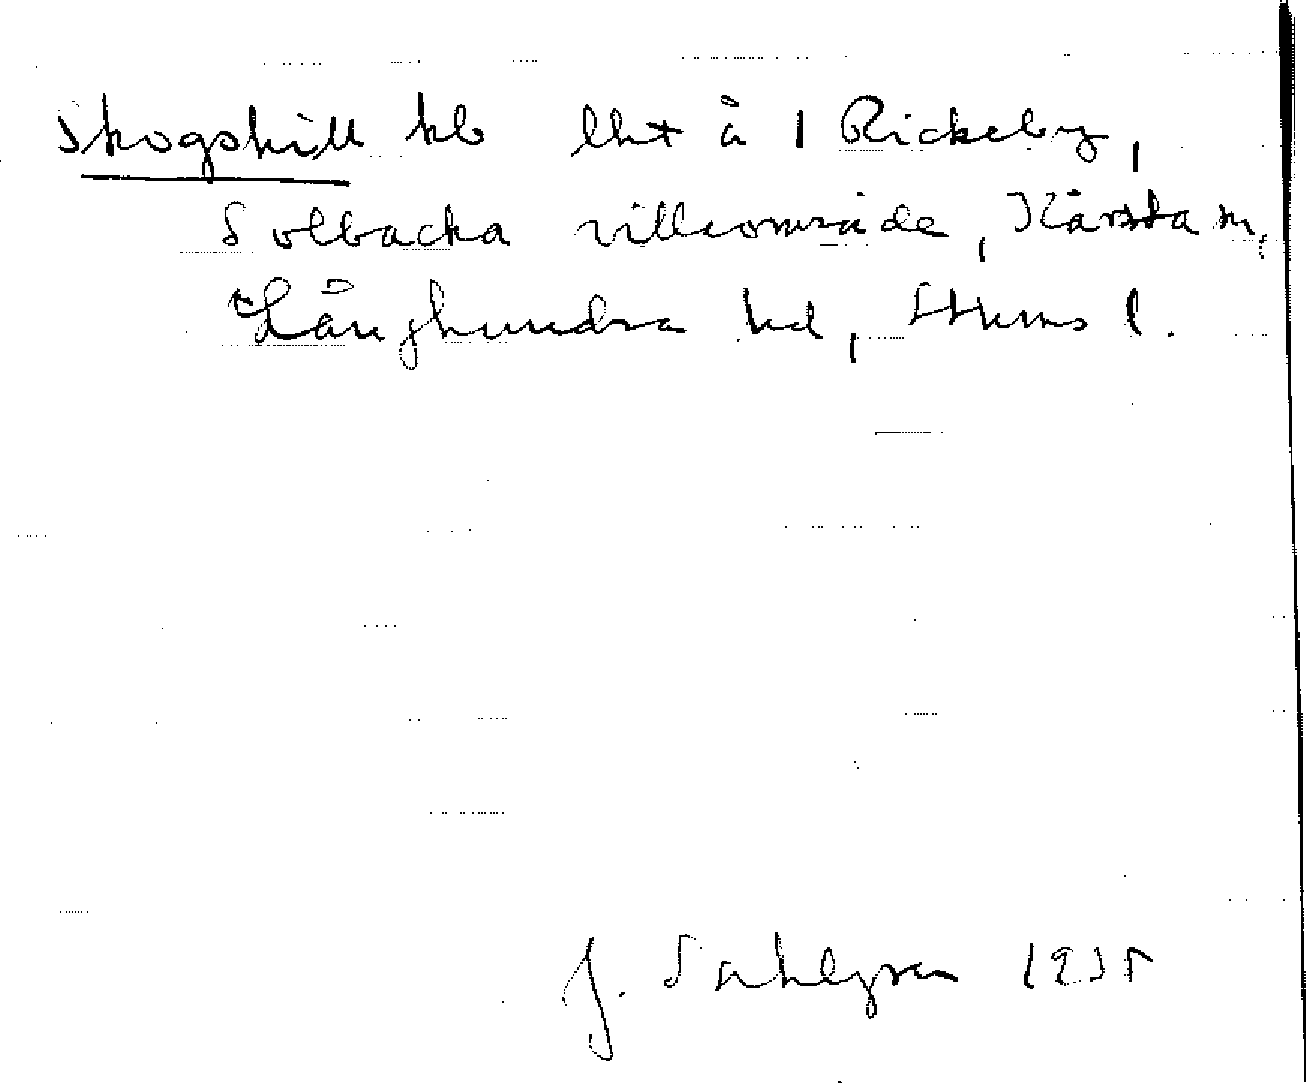 Skogshill kb lht å 1 Rickeby,
Solbacka villaområde, Kårsta sn,
Långhundra hd, Sthms l.
J. Sahlgren 1935